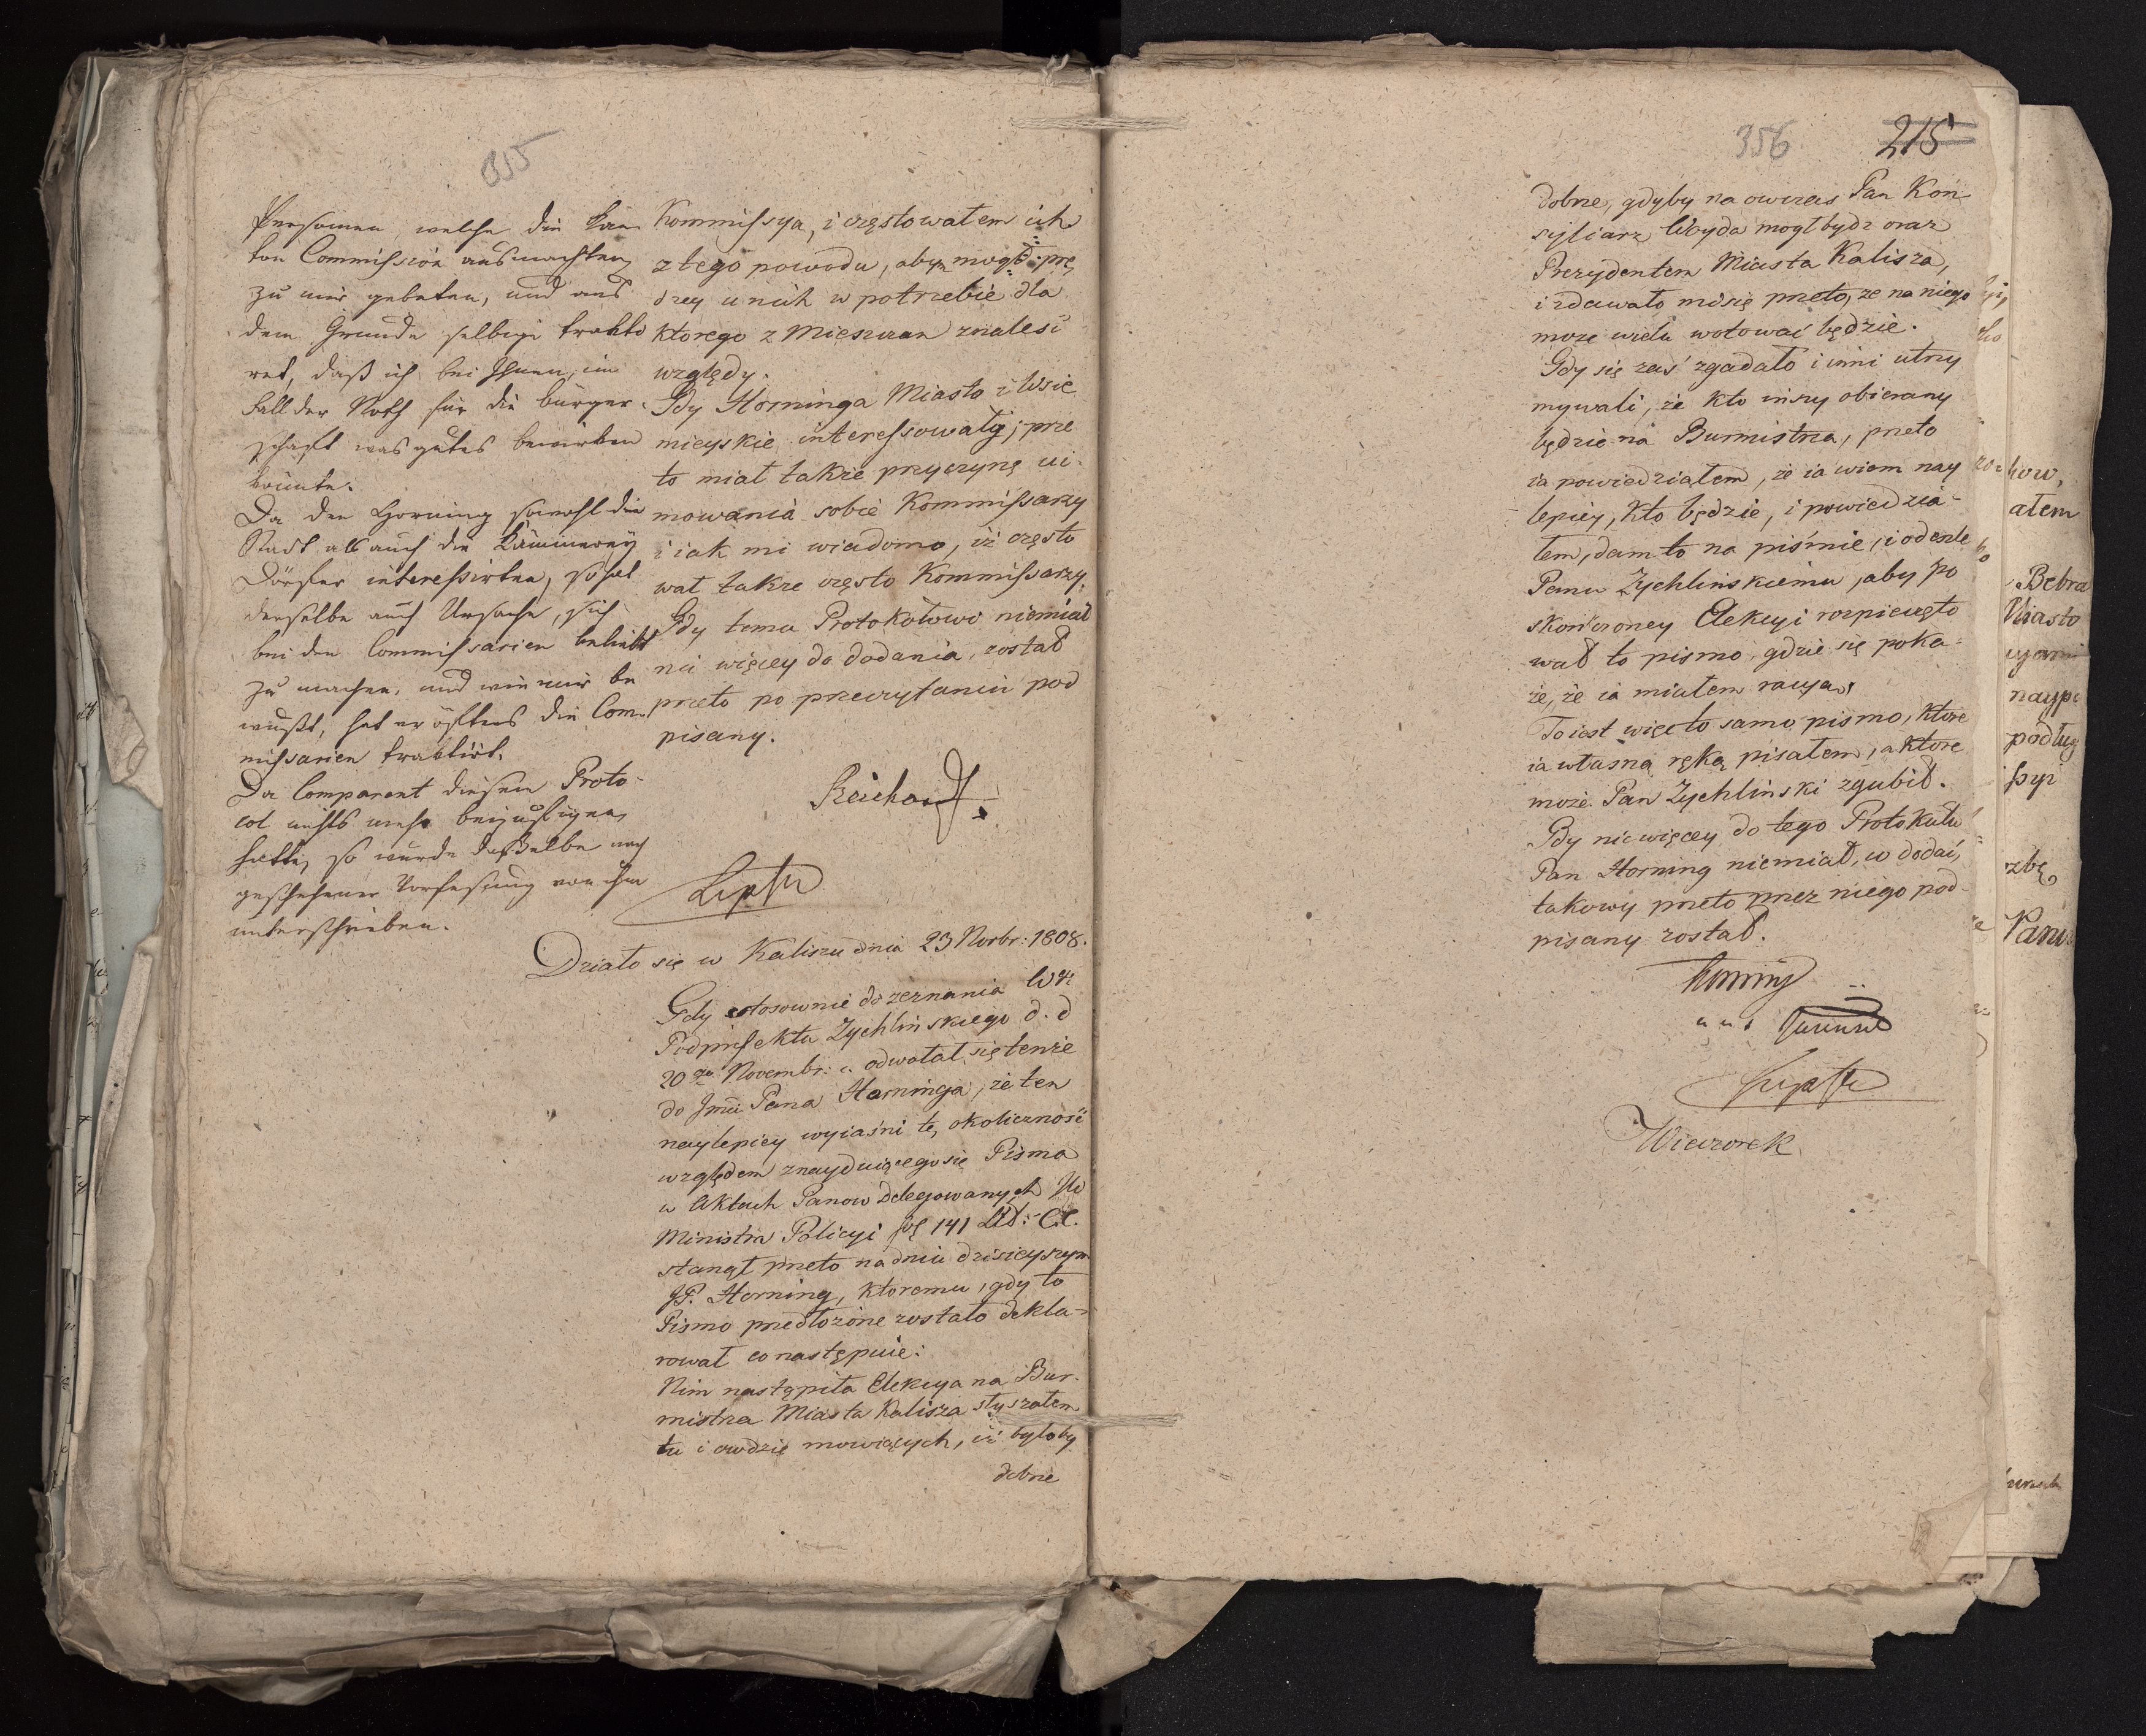 355
Personen, welche die
ten Commission ausmachten
zu mir gebeten, und aus
dem Grunde selbige trakti
ret, daß ich bei Ihnen, im
Fall der Noth für die Bürger-
schaft was gutes bewirken
könnte.
Da der Horning sowohl die
Stadt als auch die Kämmerey
Dörfer interessirten, so hat
derselbe auch Ursache, sich
bei den Commissarien beliebt
zu machen, und wie mir be
wußt, hat er öfters die Com-
missarien tractirt.
Da Comparent diesem Proto-
col nichts mehr beizufügen
hatte, so wurde daßelbe nach
geschehener Vorlesung von ihm
unterschrieben.
Kommissya, i częstowałem ich
z tego powodu, abym mogł prę
dzey u nich w potrzebie dla
ktorego z Mieszczan znalesć
względy.
Gdy Horninga Miasto i Wsie
mieyskie interessowały; prze
to miał także przyczynę ui-
mowania sobie Kommissarzy
i iak mi wiadomo, iż często
wał także często Kommissarzy.
Gdy temu Protokołowi niemiał
nic więcey do dodania, został
przeto po przeczytaniu pod
pisany.
Reichard
Działo się w Kaliszu dnia 23 Novbr: 1808.
Gdy stosownie do zeznania
Podprefekta Zychlinskiego d. d
20 Novembr: c. odwołał się tenże
do Jmci Pana Horninga, że ten
naylepiey wyiaśni tę okoliczność
względem znayduiącego się Pisma
w Aktach Panow Delegowanych
Ministra Policyi 141 Lit: C.C.
stanął przeto na dniu dzisieyszym
JP. Horning, ktoremu, gdy to
Pismo przedłożone zostało dekla-
rował co następuie:
Nim nastąpiła Elekcya na Bur-
mistrza Miasta Kalisza słyszałem
tu i owdzie mowiących, iż byłoby
dobrze
356 215
dobrze, gdyby na owczas Pan Kon
syliarz Woyda mogł bydz oraz
Prezydentem Miasta Kalisza,
i zdawało mi się przeto, że na niego
może wielu wotować będzie.
Gdy się zaś zgadało i inni utrzy
mywali, że kto inszy obierany
będzie na Burmistrza, przeto
ia powiedziałem, że ia wiem nay
lepiey, kto będzie, i powiedzia-
łem, dam to na piśmie, i odeszle
Panu Zychlinskiemu, aby po
skonczoney Elekcyi rozpieczęto
wał to pismo, gdzie się poka-
że, że ia miałem racyą,
To iest więc to samo pismo, ktore
ia własną ręką pisałem, a ktore
może Pan Zychlinski zgubił.
Gdy nic więcey do tego Protokułu
Pan Horning niemiał, w dodać,
takowy przeto przez niego pod-
pisany został.
Horning
Wieczorek
how,
ałem
Bebra
Miasto
podług